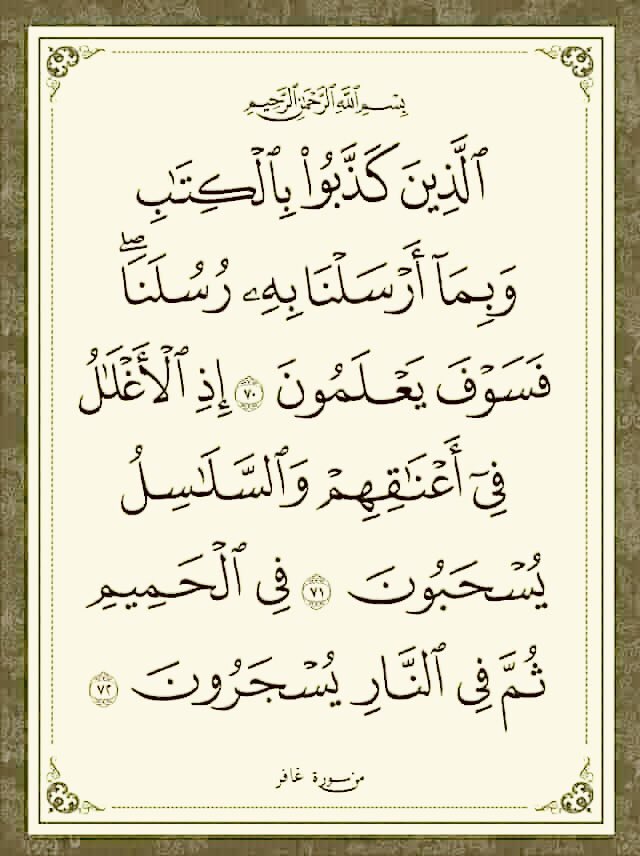 بِسْمِ ٱللَّهِ ٱلرَّحْمَٰنِ ٱلرَّحِيمِ
ٱلَّذِينَ كَذَّبُوا۟ بِٱلْكِتَٰبِ
وَبِمَآ أَرْسَلْنَا بِهِۦ رُسُلَنَا ۖ
فَسَوْفَ يَعْلَمُونَ ٧٠ إِذِ ٱلْأَغْلَٰلُ
فِىٓ أَعْنَٰقِهِمْ وَٱلسَّلَٰسِلُ
يُسْحَبُونَ ٧١ فِى ٱلْحَمِيمِ
ثُمَّ فِى ٱلنَّارِ يُسْجَرُونَ ٧٢
من سورة غافر